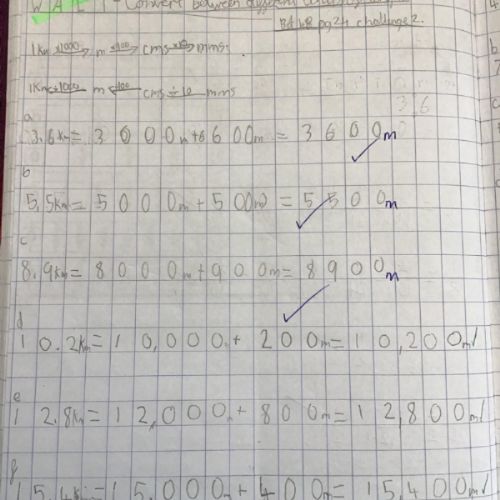 WALT - Convert between different
pg 24 challenge 2.
1Km x1000 m x100 cms x10 mms
1Km ÷1000 m ÷100 cms ÷10 mms
3,6
a
3.6Km = 3000m + 600m = 3600m
b
5.5Km = 5000m + 500m = 5500m
c
8.9Km = 8000m + 900m = 8900m
d
10.2Km = 10,000m + 200m = 10,200m
e
12.8Km = 12,000m + 800m = 12,800m
f
15.4Km = 15,000m + 400m = 15,400m